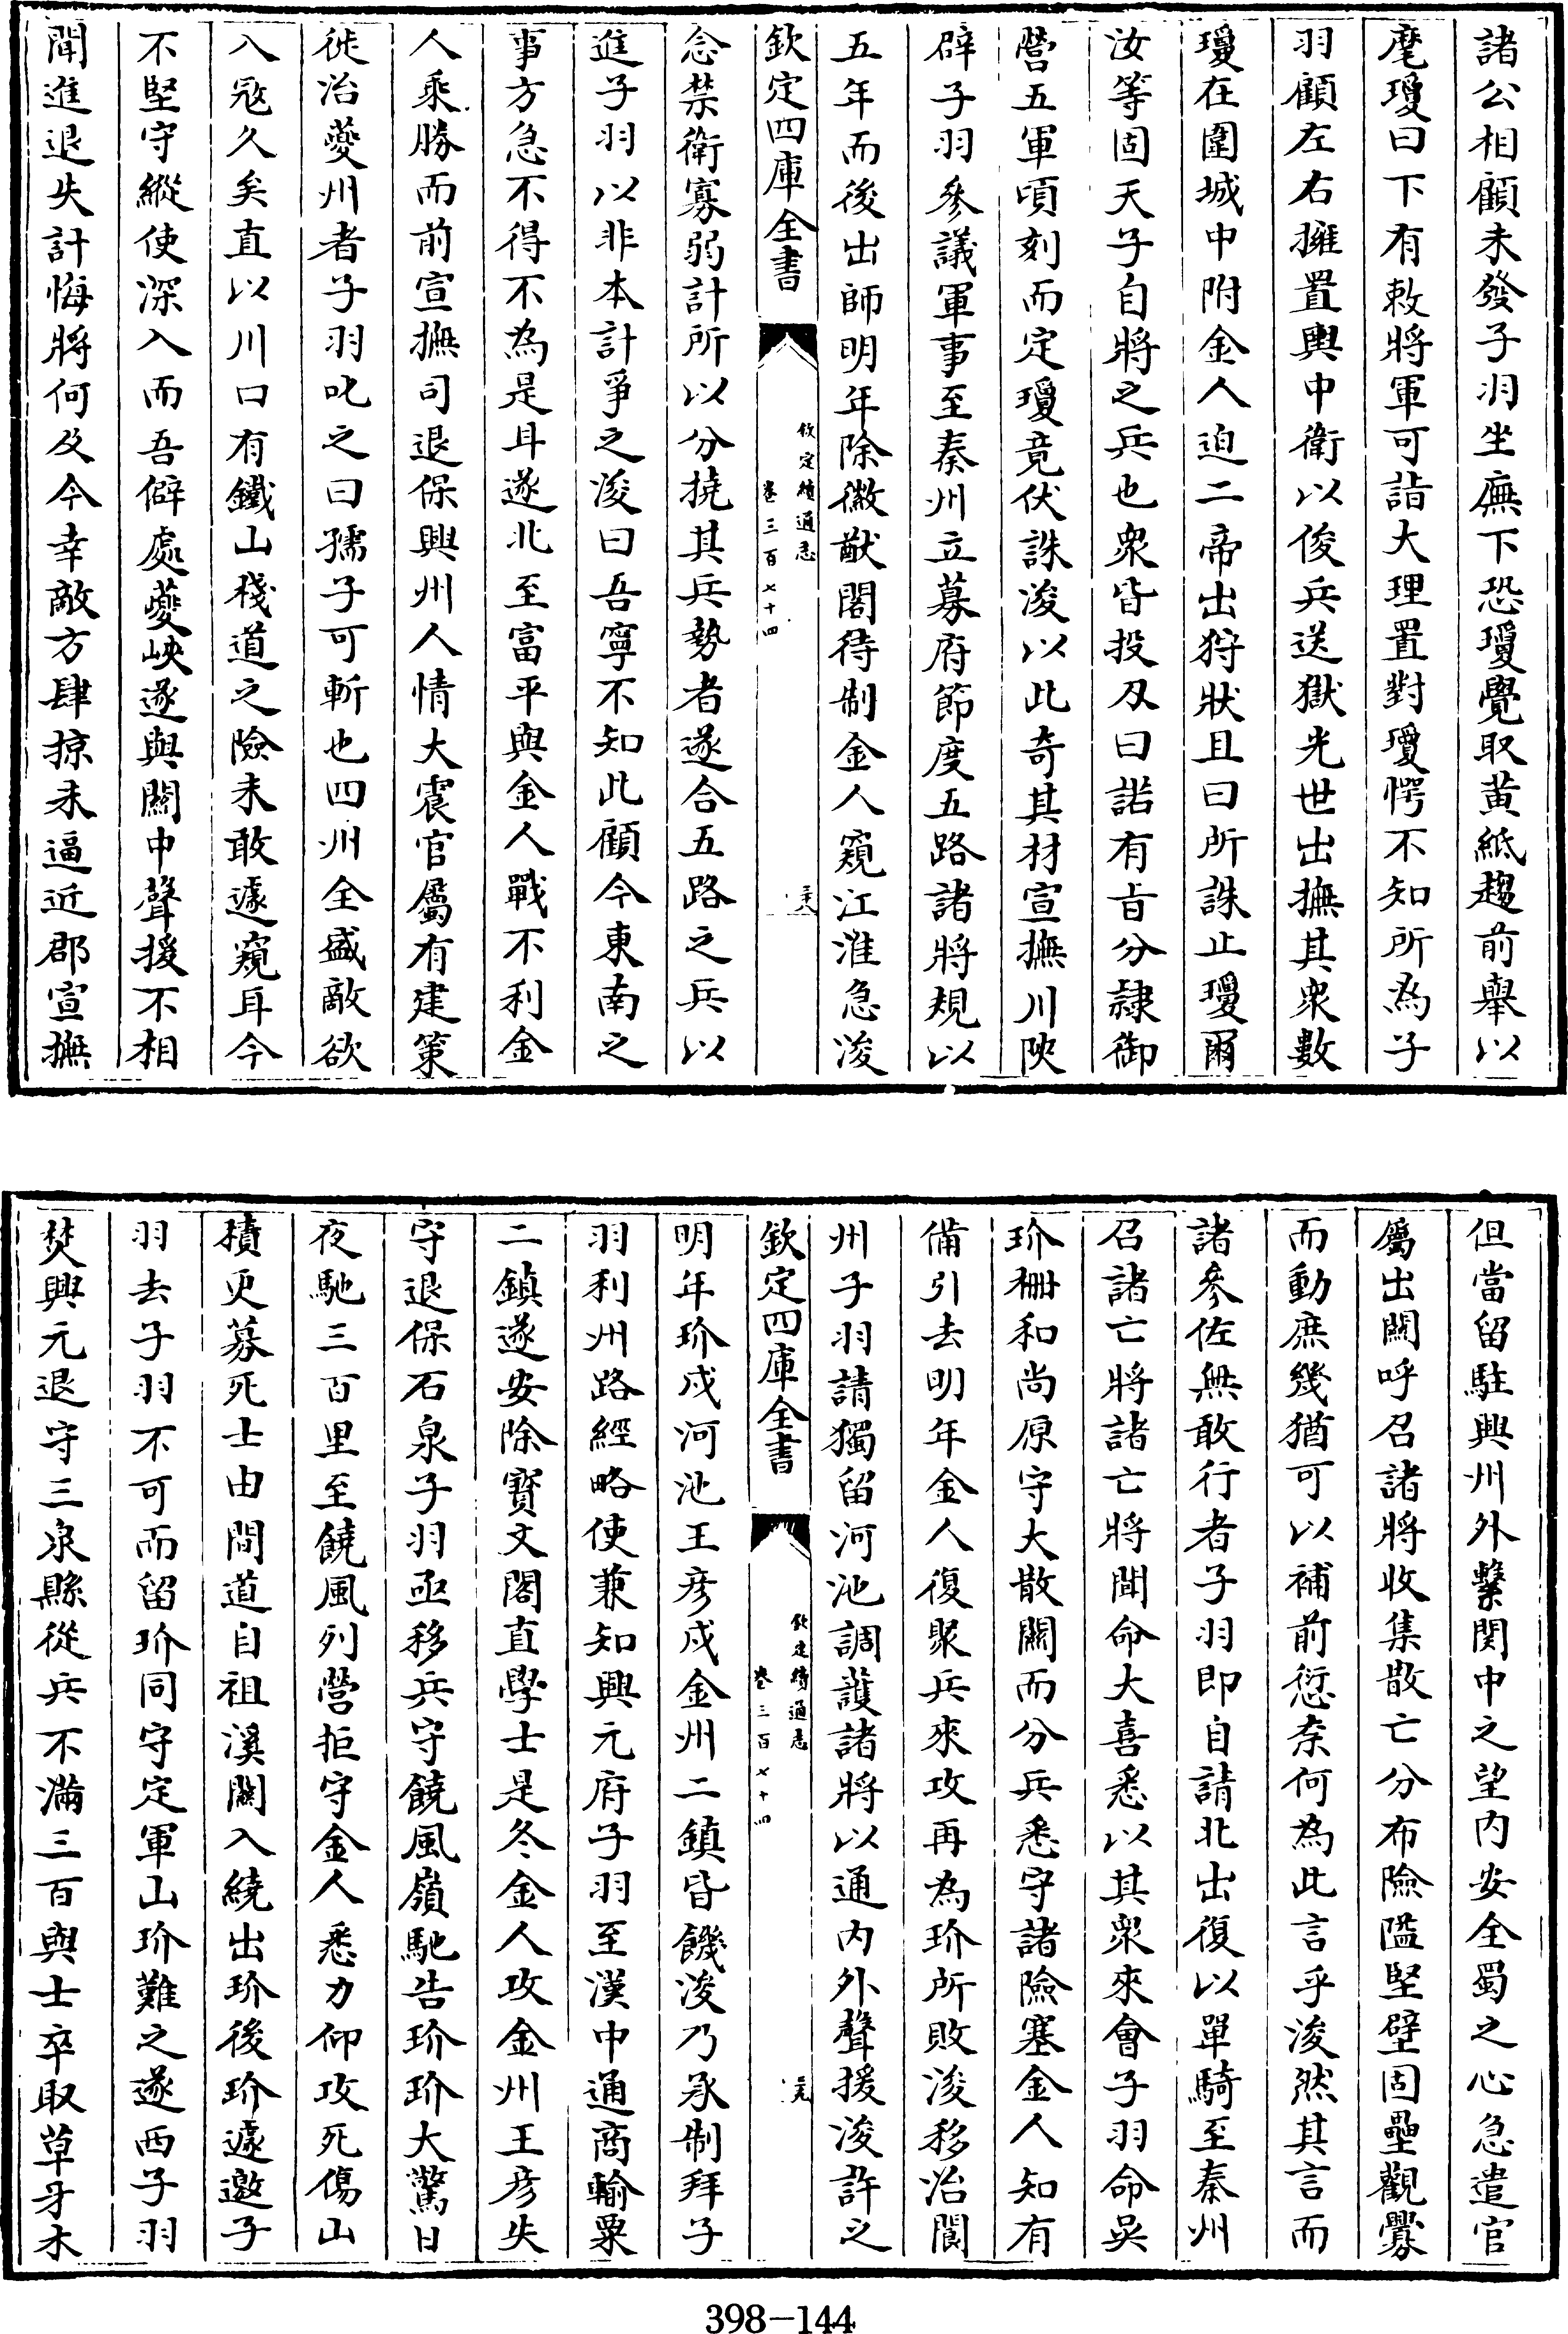 諸公相顧未發子羽坐廡下恐瓊覺取黄紙趨前舉以
麾瓊曰下有敕將軍可詣大理置對瓊愕不知所為子
羽顧左右擁置輿中衛以俊兵送獄光世出撫其衆數
瓊在圍城中附金人迫二帝出狩狀且曰所誅止瓊爾
汝等固天子自將之兵也衆皆投刃曰諾有旨分隷御
營五軍頃刻而定瓊竟伏誅浚以此奇其材宣撫川陜
辟子羽參議軍事至秦州立幕府節度五路諸將規以
五年而後出師明年除徽猷閣待制金人窺江淮急浚
欽定四庫全書
欽定續通志
卷三百七十四
三十八
念禁衛寡弱計所以分撓其兵勢者遂合五路之兵以
進子羽以非本計爭之浚曰吾寧不知此顧今東南之
事方急不得不為是耳遂北至富平與金人戰不利金
人乘勝而前宣撫司退保興州人情大震官屬有建策
徙治夔州者子羽叱之曰孺子可斬也四川全盛敵欲
入寇久矣直以川口有鐵山棧道之險未敢遽窺耳今
不堅守縱使深入而吾僻處夔峽遂與關中聲援不相
聞進退失計悔將何及今幸敵方肆掠未逼近郡宣撫
但當留駐興州外繫関中之望内安全蜀之心急遣官
屬出關呼召諸將收集散亡分布險隘堅壁固壘觀釁
而動庶幾猶可以補前愆奈何為此言乎浚然其言而
諸參佐無敢行者子羽即自請北出復以單騎至秦州
召諸亡將諸亡將聞命大喜悉以其衆來會子羽命吳
玠柵和尚原守大散關而分兵悉守諸險塞金人知有
備引去明年金人復聚兵來攻再為玠所敗浚移治閬
州子羽請獨留河池調䕶諸將以通内外聲援浚許之
欽定四庫全書
欽定續通志
卷三百七十四
三十九
明年玠戍河池王彦戍金州二鎮皆饑浚乃承制拜子
羽利州路經略使兼知興元府子羽至漢中通商輸粟
二鎮遂安除寳文閣直學士是冬金人攻金州王彦失
守退保石泉子羽亟移兵守饒風嶺馳告玠玠大驚日
夜馳三百里至饒風列營拒守金人悉力仰攻死傷山
積更募死士由間道自祖溪關入繞出玠後玠遽邀子
羽去子羽不可而留玠同守定軍山玠難之遂西子羽
焚興元退守三泉縣從兵不滿三百與士卒取草牙木
398-144